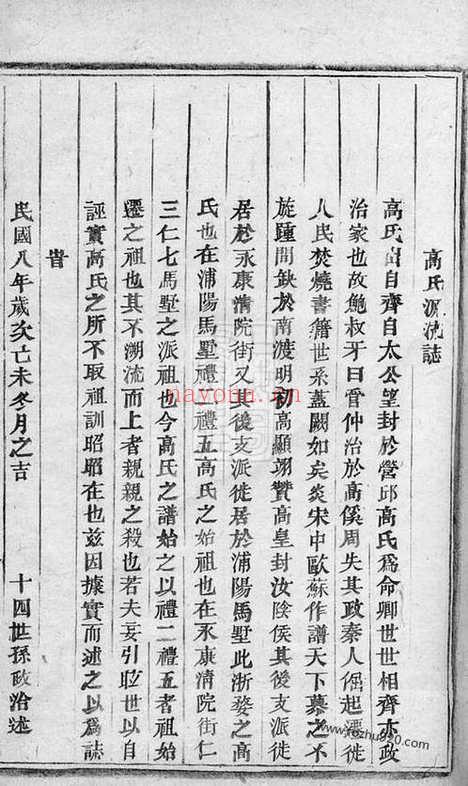 高氏源流誌
高氏出自齊自太公望封於營邱高氏爲命卿世世相齊亦政
治家也故鮑叔牙曰管仲治於高傒周失其政秦人倔起遷徙
人民焚燒書籍世系蓋闕如矣炎宋中歐蘇作譜天下慕之不
旋踵間缺於南渡明初高顯翊贊高皇封汝陰侯其後支派徙
居於永康清院街又其後支派徙居於浦陽馬墅此浙婺之高
氏也在浦陽馬墅禮二禮五高氏之始祖也在永康清院街仁
三仁七馬墅之派祖也今高氏之譜始之以禮二禮五者祖始
遷之祖也其不溯流而上者親親之殺也若夫妄引眩世以自
誣實高氏之所不取祖訓昭昭在也兹因據實而述之以爲誌
旹
民國八年歲次己未冬月之吉 十四世孫政治述
nayona.cn
www.fozhu920.com